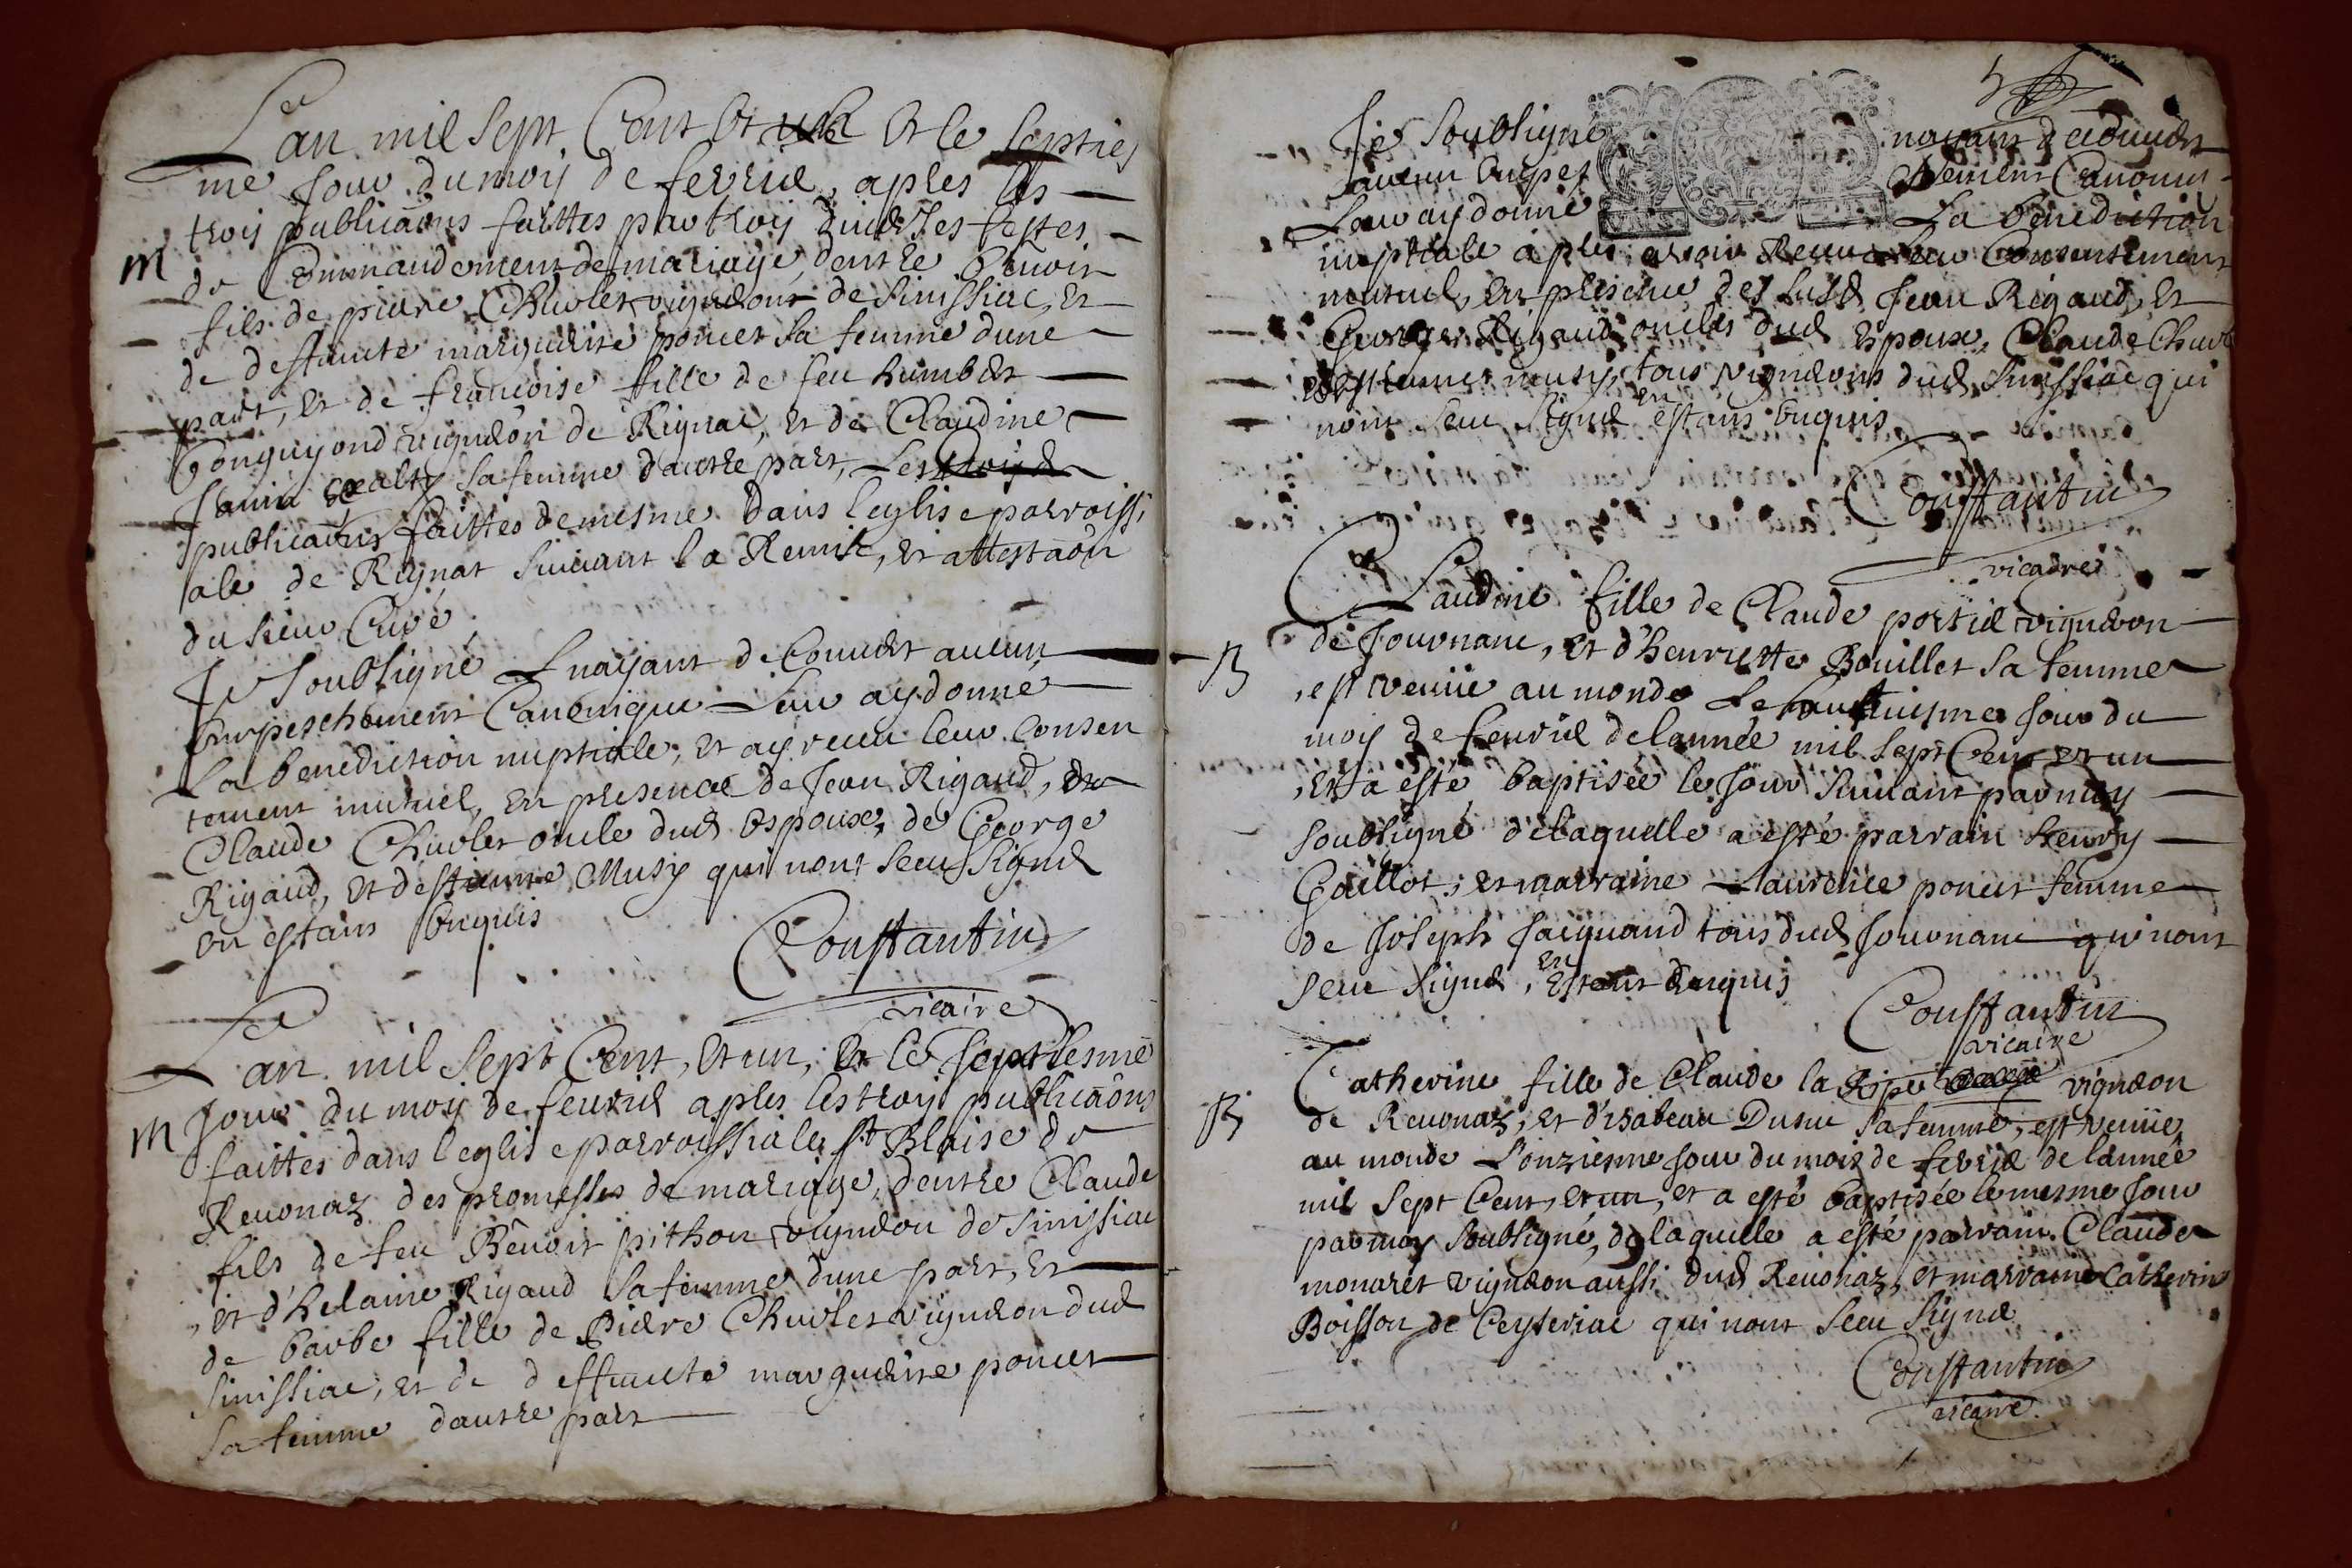 Lan mil sept Cent et un et le septies
me Jour du moy de febvrier, apres les
trois publicaons faittes par trois diverses festes
M
de Commandement de mariage, dentre Benoit
fils de pierre Chuvlet vigneron de Sinissiac, et
de deffuncte marguerite poncet sa femme dune
part, et de francoise fille de feu humbert
Conguyond vigneron de Rignac, et de Claudine
Janin sa femme dautre part, Les
publicaons faittes de mesme dans leglise parroissi
ale de Rignat suivant la Remise, et attestaon
du sieur Curé
Je soubsigné nayant decouvert aucun
empeschement Canonique Leur ay donné
La benediction nuptiale, et ay receu leur consen
tement mutuel, en presence de Jean Rigaud, de
Claude Chuvlet oncle dud espoux, de George
Rigaud, et destienne Musy qui nont sceu signer
en estans enquis
Constantin
vicaire
Lan mil sept Cent, et un, et le septiesme
M
Jour du moy de feuvrier apres les trois publicaons
faittes dans leglise parroissiale St Blaise de
Revonaz des promesses de mariage, dentre Claude
fils de feu Benoit pithon vigneron de Sinissiac
et d'helaine Rigaud sa femme dune part, et
de barbe fille de Pierre Chuvlet vigneron dud
Sinissiac, et de deffuncte marguerite poncet
sa femme dautre part
5
Je soubsigné nayant decouvert
aucun empes chement Canonique
Leur ay donné La benediction
nuptiale apres avoir Receu leur Consentement
mutuel, en presence des susd Jean Rigaud, et
George Rigaud oncles dud espoux, Claude Chuvlet
estienne musy, tous vignerons dud Sinissiac qui
nont sceu signer en estans enquis
Constantin
vicaire
Claudine fille de Claude portier vigneron
B
de Journanc, et d'henriette Bouillet sa femme
est venüe au monde le huictiesme Jour du
moy de feuvrier de lannée mil sept Cent et un
et a esté baptisée le Jour suivant par moy
soubsigné de laquelle a esté parrain henry
Gaillot, et marraine Laurence poncet femme
de Joseph Jacquand tous dud Journanc qui nont
sceu signer, en estant enquis
Constantin
vicaire
Catherine fille de Claude la Ripe vigneron
B
de Revonaz, et d'isabeau Dusuc sa femme, est venüe
au monde L'onziesme Jour du mois de febvrier de lannée
mil sept Cent, et un, et a esté baptisée le mesme Jour
par moy soubsigné, de laquelle a esté parrain Claude
monaret vigneron aussi dud Revonaz, et marraine Catherine
Boisson de Ceyseriac qui nont sceu signer
Constantin
vicaire